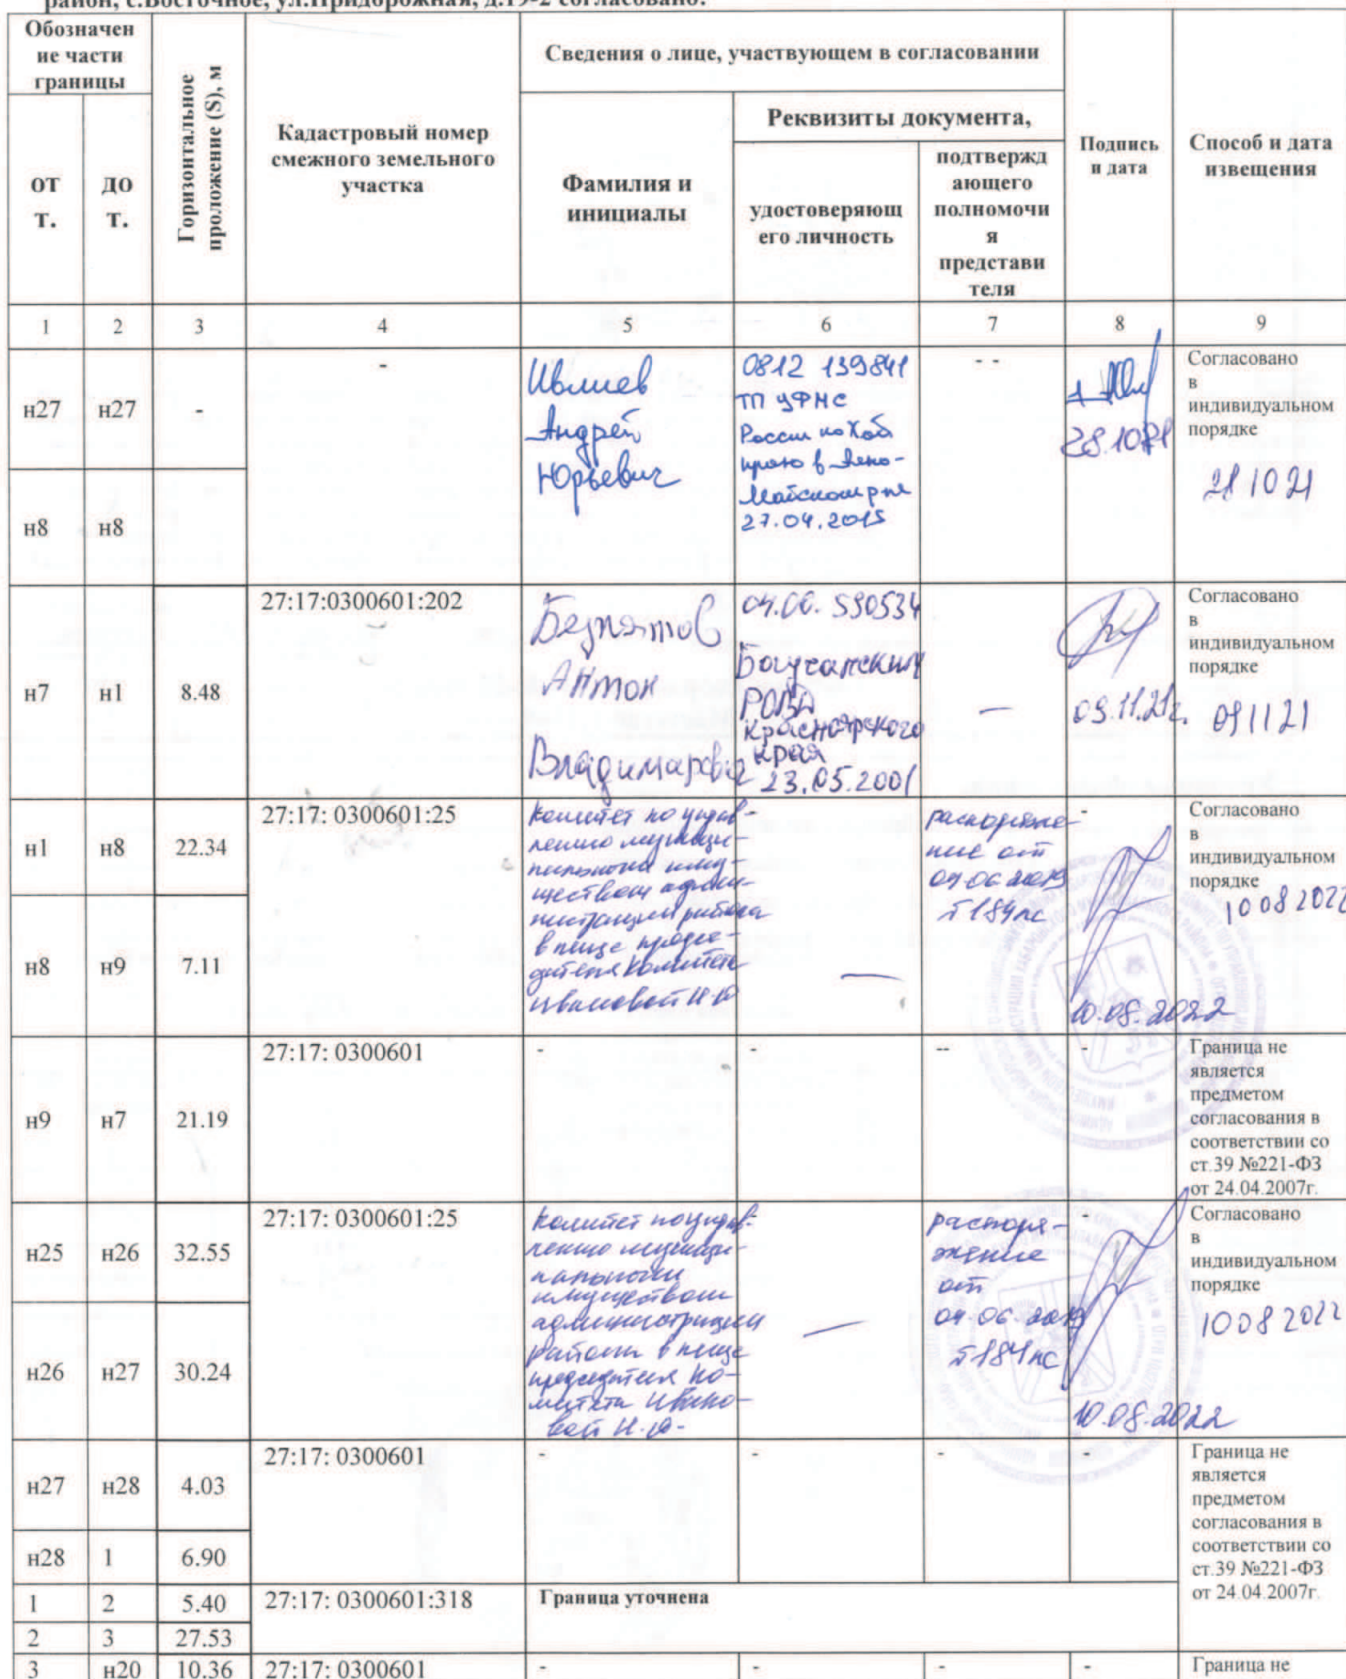 район, с.Восточное, ул.Придорожная, д.19-2 согласовано:
Обозначен
ие части
границы
Горизонтальное
проложение (S), м
Кадастровый номер
смежного земельного
участка
Сведения о лице, участвующем в согласовании
Подпись
и дата
Способ и дата
извещения
от
т.
до
т.
Фамилия и
инициалы
Реквизиты документа,
удостоверяющ
его личность
подтвержд
ающего
полномочи
я
представи
теля
1 2 3 4 5 6 7 8 9
н27 н27 -
н8 н8
-
Ивлиев
Андрей
Юрьевич
0812 139841
ТП УФМС
России по Хаб
краю в Аяно-
Майском р-не
27.04.2015
- -
28.10.21
Согласовано
в
индивидуальном
порядке
28 10 21
н7 н1 8.48 27:17:0300601:202
Безпятов
Антон
Владимирович
04.00. 590534
Богучанским
РОВД
Красноярского
края
23.05.2001
—
09.11.21г.
Согласовано
в
индивидуальном
порядке
09 11 21
н1 н8 22.34
н8 н9 7.11
27:17: 0300601:25
Комитет по управ-
лению муници-
пальным иму-
ществом адми-
нистрации района
в лице предсе-
дателя Комитета
Ивановой Н.Ю
—
распоряже-
ние от
04.06.2019
№184лс
-
10.08.2022
Согласовано
в
индивидуальном
порядке
10 08 2022
н9 н7 21.19 27:17: 0300601 - - -- -
Граница не
является
предметом
согласования в
соответствии со
ст.39 №221-ФЗ
от 24.04.2007г.
н25 н26 32.55
н26 н27 30.24
27:17: 0300601:25
Комитет по управ-
лению муници-
пальным
имуществом
администрации
района в лице
председателя Ко-
митета Ивано-
вой Н.Ю.
—
распоря-
жение
от
04.06.2019
№184лс
-
10.08.2022
Согласовано
в
индивидуальном
порядке
10 08 2022
н27 н28 4.03
н28 1 6.90
27:17: 0300601 - - - -
Граница не
является
предметом
согласования в
соответствии со
ст.39 №221-ФЗ
от 24.04.2007г.
1 2 5.40 27:17: 0300601:318 Граница уточнена
2 3 27.53
3 н20 10.36 27:17: 0300601 - - - - Граница не